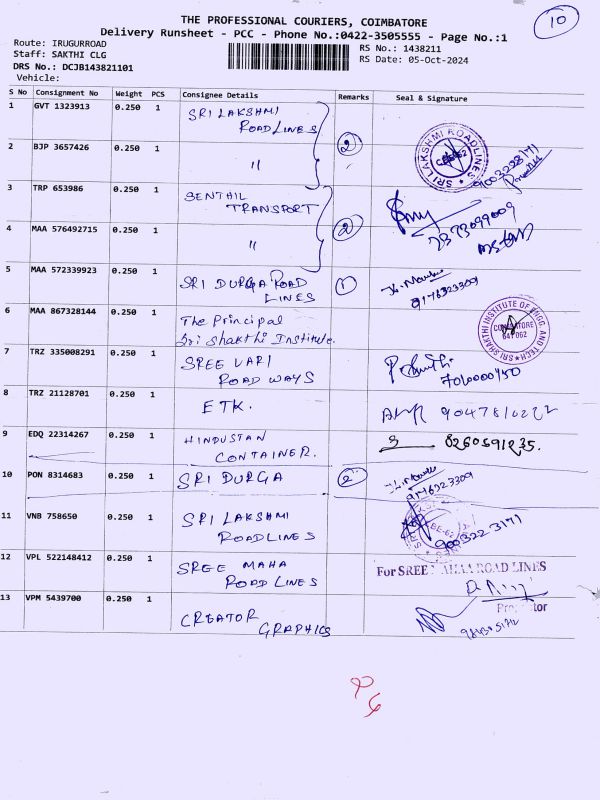 THE PROFESSIONAL COURIERS, COIMBATORE
10
Delivery Runsheet - PCC - Phone No.:0422-3505555 - Page No.:1
Route: IRUGURROAD
RS No.: 1438211
Staff: SAKTHI CLG
RS Date: 05-Oct-2024
DRS No.: DCJB143821101
Vehicle:
S No Consignment No Weight PCS Consignee Details Remarks Seal & Signature
1 GVT 1323913 0.250 1 SRI LAKSHMI
ROAD LINES
2 BJP 3657426 0.250 1 " 2
SRI LAKSHMI ROADLINES
9003223171
3 TRP 653986 0.250 1 SENTHIL
TRANSPORT
4 MAA 576492715 0.250 1 " 2
5 MAA 572339923 0.250 1 SRI DURGA ROAD
LINES 1
9176323309
6 MAA 867328144 0.250 1 The Principal
Sri Shakthi Institute.
SRI SHAKTHI INSTITUTE OF ENGG. AND TECH
COIMBATORE
641 062
7 TRZ 335008291 0.250 1 SREE VARI
ROAD WAYS
8 TRZ 21128701 0.250 1 ETK.
9 EDQ 22314267 0.250 1 HINDUSTAN
CONTAINER.
10 PON 8314683 0.250 1 SRI DURGA 2
9176323309
11 VNB 758650 0.250 1 SRI LAKSHMI
ROADLINES
9003223171
12 VPL 522148412 0.250 1 SREE MAHA
ROAD LINES
For SREE MAHAA ROAD LINES
13 VPM 5439700 0.250 1 CREATOR
GRAPHICS